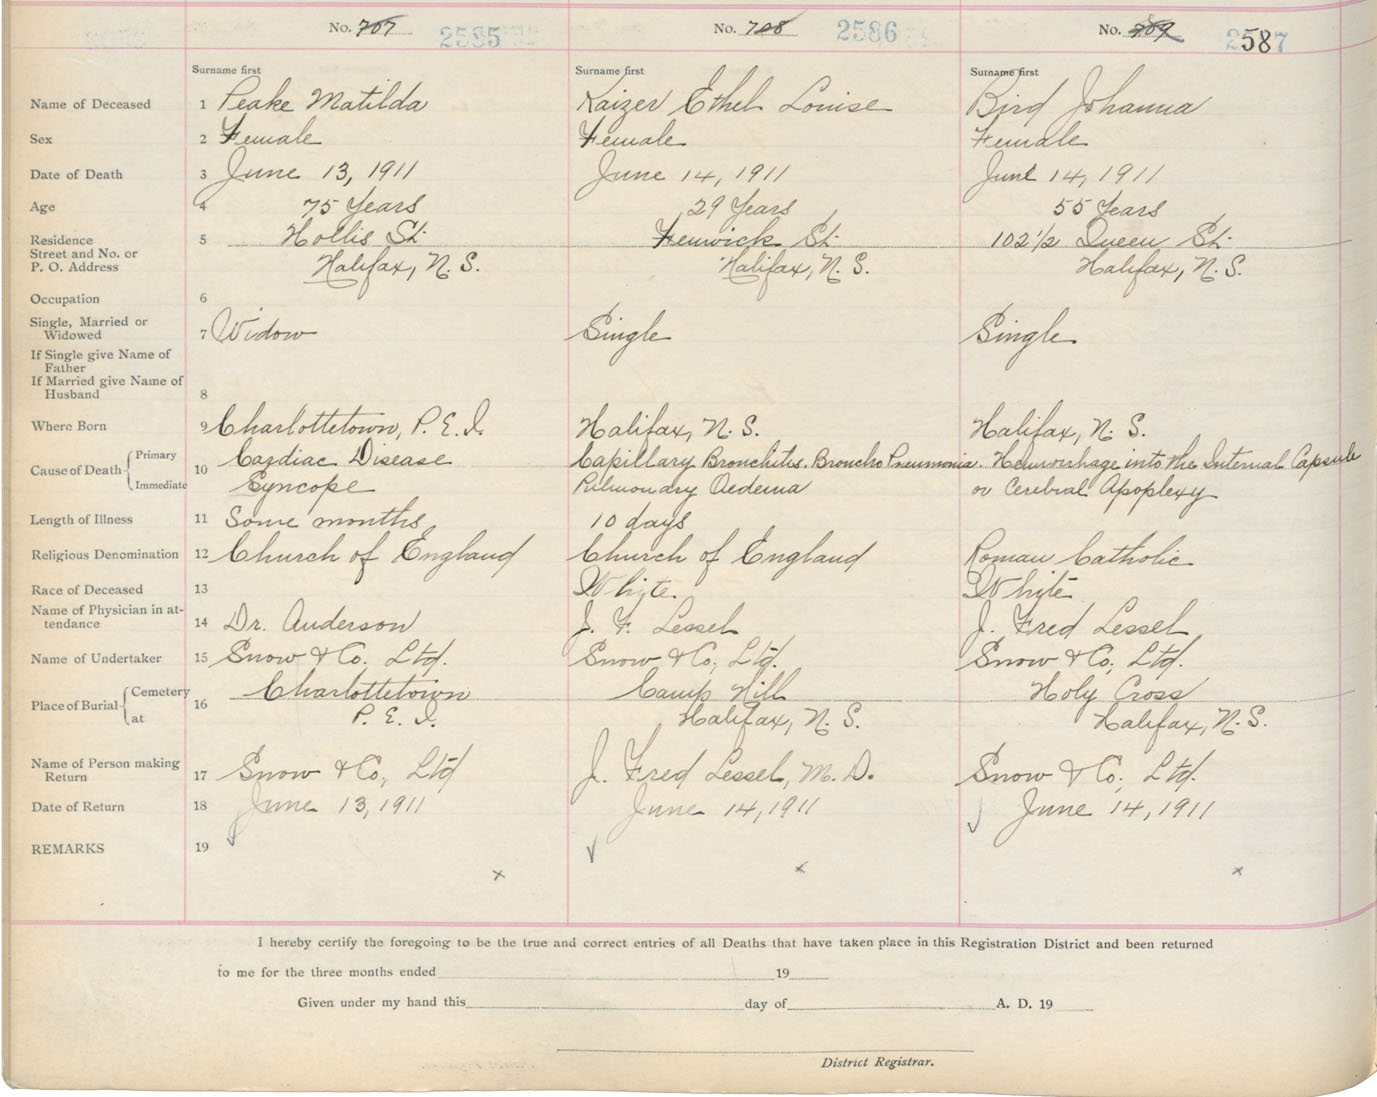 No. 707 2585
No. 708 2586
No. 709 2587
Surname first Surname first Surname first
Name of Deceased 1 Peake Matilda Kaizer Ethel Louise Bird Johanna
Sex 2 Female Female Female
Date of Death 3 June 13, 1911 June 14, 1911 June 14, 1911
Age 4 75 Years 29 Years 55 Years
Residence 5 Hollis St. Fenwick St. 102 1/2 Queen St.
Street and No. or
P. O. Address Halifax, N. S. Halifax, N. S. Halifax, N. S.
Occupation 6
Single, Married or
Widowed 7 Widow Single Single
If Single give Name of
Father
If Married give Name of
Husband 8
Where Born 9 Charlottetown, P. E. I. Halifax, N. S. Halifax, N. S.
Cause of Death Primary Cardiac Disease Capillary Bronchitis. Broncho Pneumonia. Hemorrhage into the Internal Capsule
10 Immediate Syncope Pulmonary Oedema or Cerebral Apoplexy
Length of Illness 11 Some months 10 days
Religious Denomination 12 Church of England Church of England Roman Catholic
Race of Deceased 13 White. White
Name of Physician in at-
tendance 14 Dr. Anderson J. F. Lessel J. Fred Lessel
Name of Undertaker 15 Snow & Co, Ltd. Snow & Co, Ltd. Snow & Co, Ltd.
Place of Burial Cemetery 16 Charlottetown Camp Hill Holy Cross
at P. E. I. Halifax, N. S. Halifax, N. S.
Name of Person making
Return 17 Snow & Co, Ltd J. Fred Lessel, M. D. Snow & Co, Ltd.
Date of Return 18 June 13, 1911 June 14, 1911 June 14, 1911
REMARKS 19
x x x
I hereby certify the foregoing to be the true and correct entries of all Deaths that have taken place in this Registration District and been returned
to me for the three months ended 19
Given under my hand this day of A. D. 19
District Registrar.